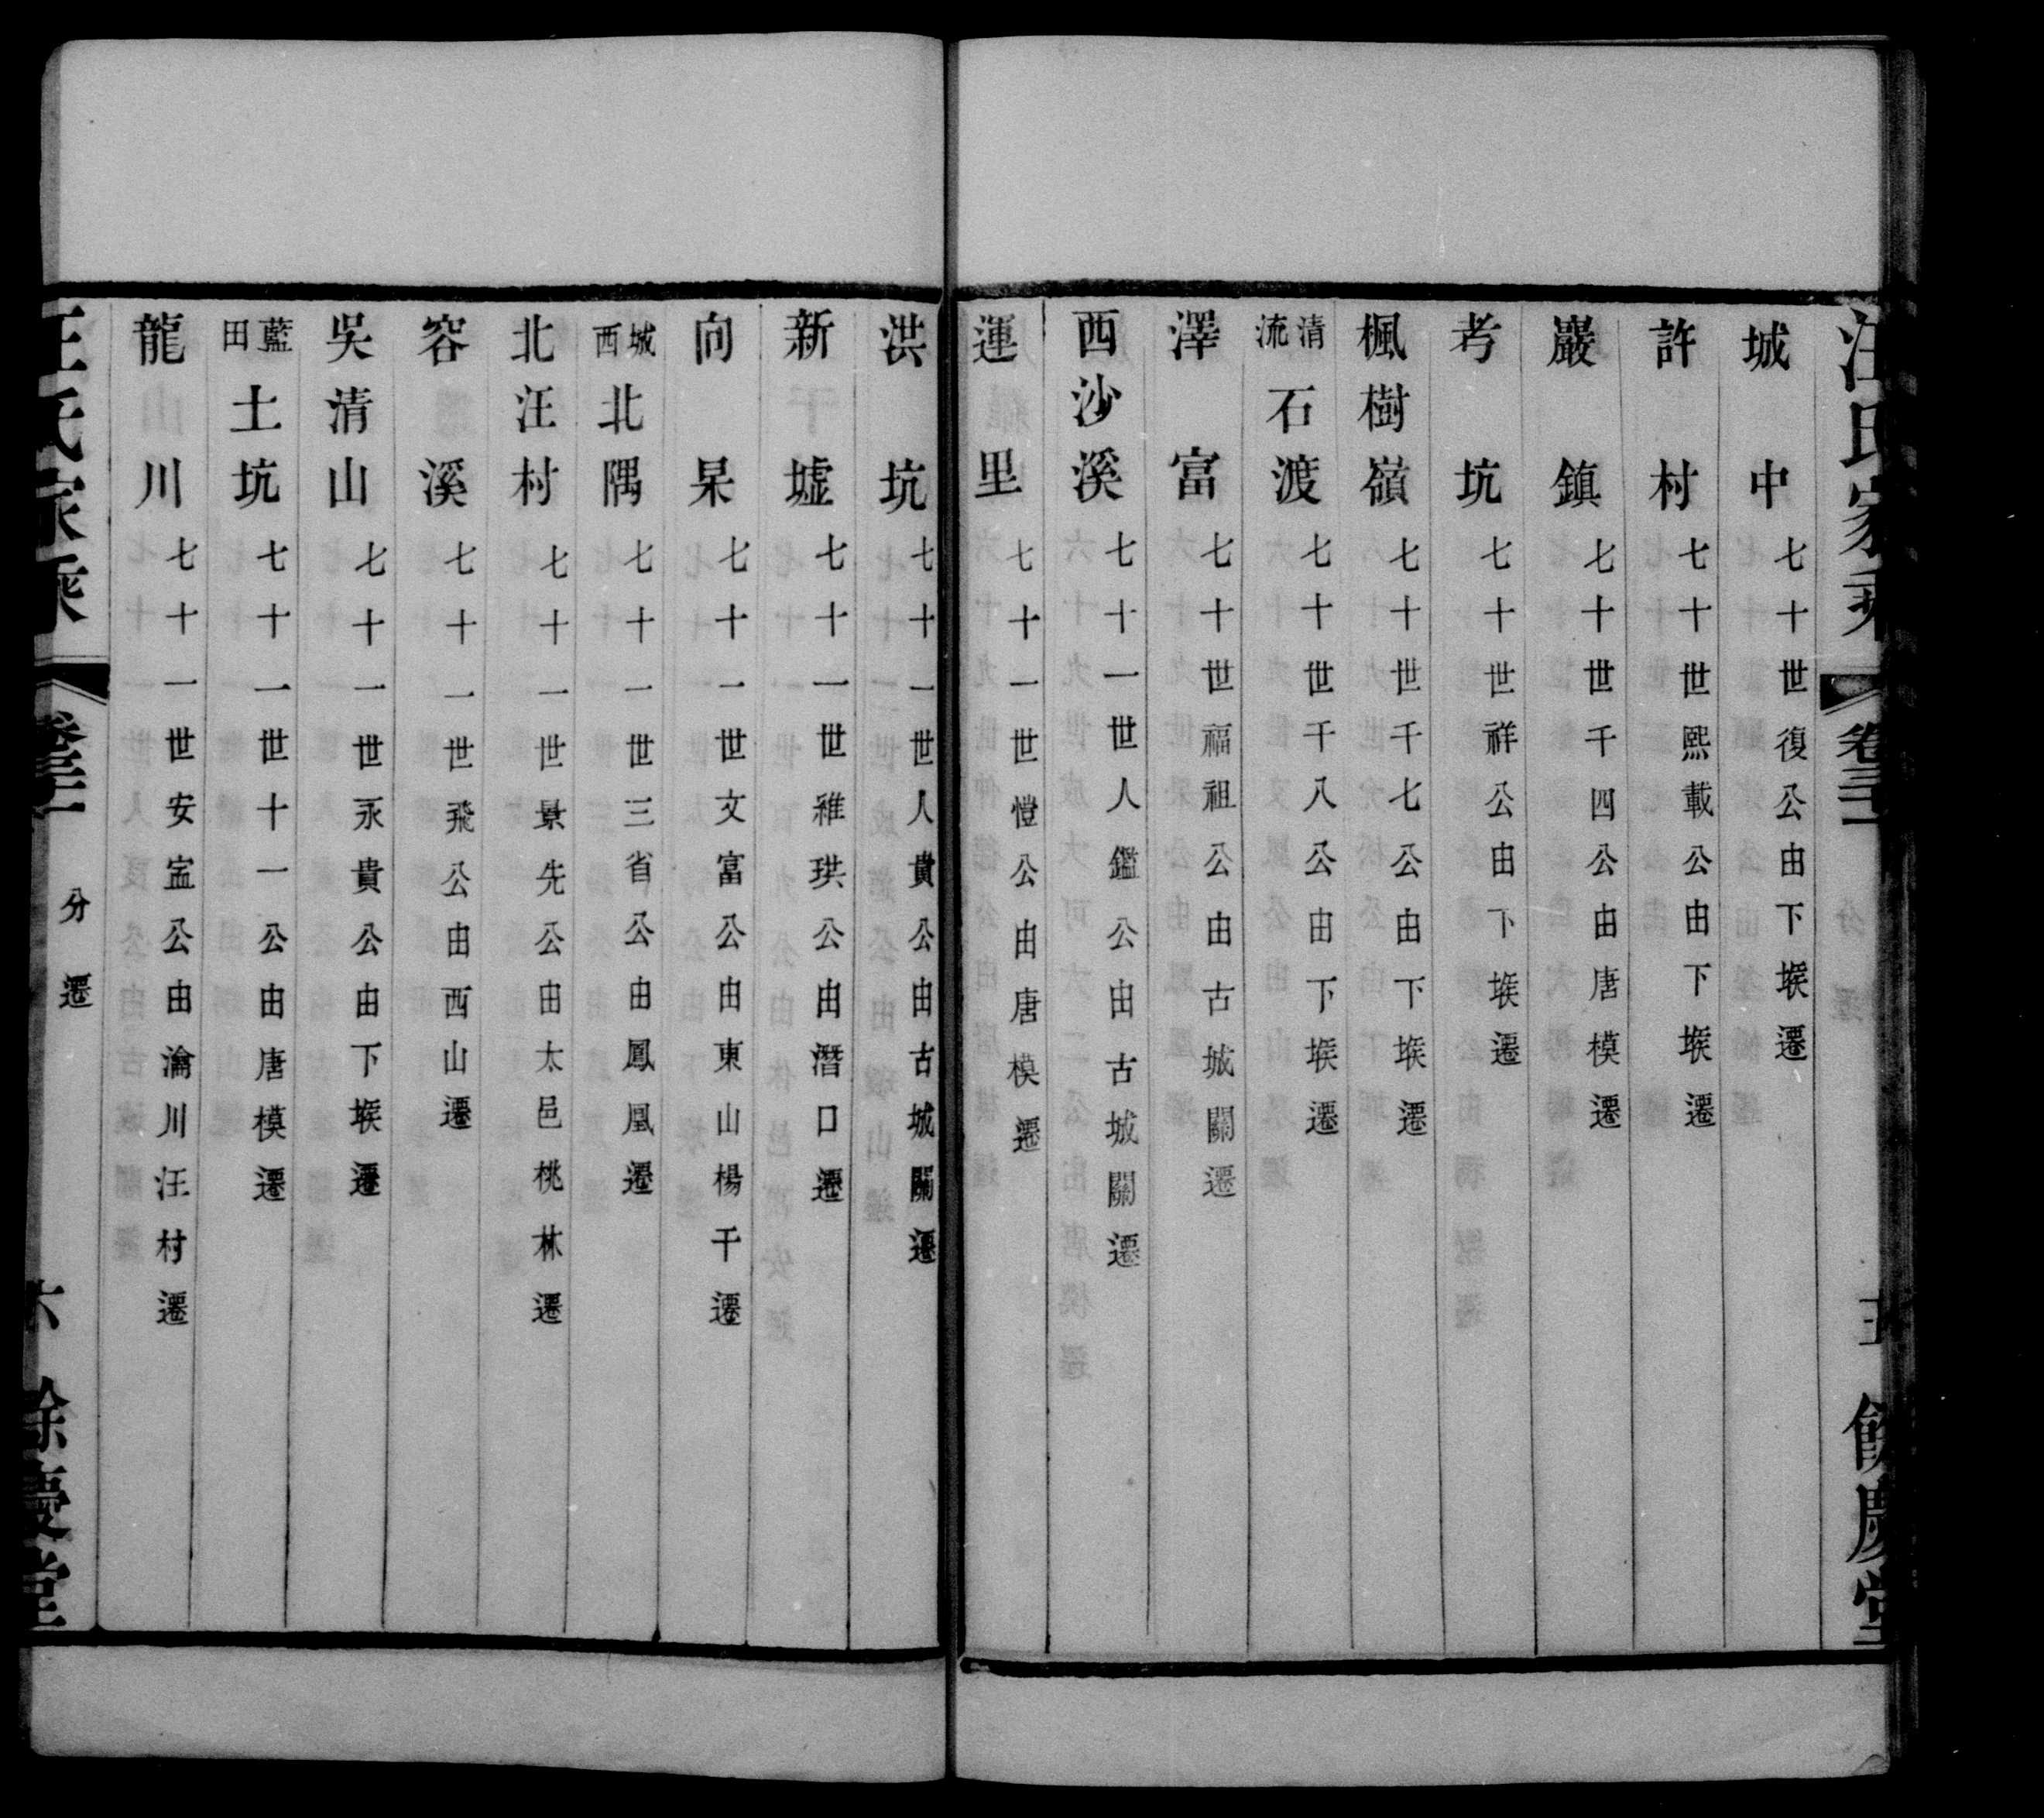 汪氏家乘 卷三 五 餘慶堂
城中 七十世復公由下堠遷
許村 七十世熙載公由下堠遷
巖鎮 七十世千四公由唐模遷
考坑 七十世祥公由下堠遷
楓樹嶺 七十世千七公由下堠遷
清流石渡 七十世千八公由下堠遷
澤富 七十世福祖公由古城關遷
西沙溪 七十一世人鑑公由古城關遷
運里 七十一世愷公由唐模遷
洪坑 七十一世人貴公由古城關遷
新墟 七十一世雅珙公由潛口遷
向杲 七十一世文富公由東山楊干遷
城西北隅 七十一世三省公由鳳凰遷
北汪村 七十一世景先公由太邑桃林遷
容溪 七十一世飛公由西山遷
吳清山 七十一世永貴公由下堠遷
藍田土坑 七十一世十一公由唐模遷
龍川 七十一世安寍公由瀹川汪村遷
汪氏家乘 卷三 分遷 六 餘慶堂